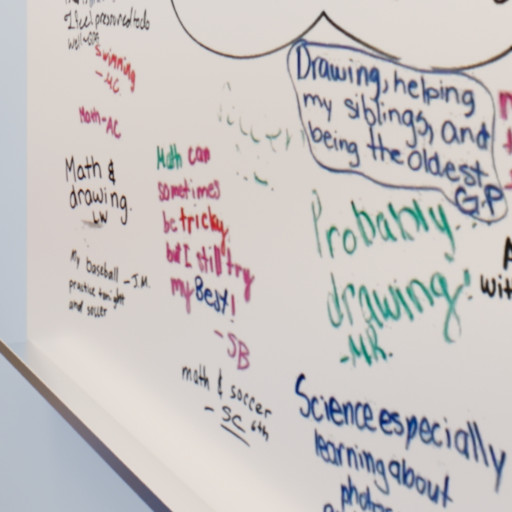 I feel pressured to do
well
Swimming
-MC
Math-AC
Math &
drawing
LW
My baseball -J.M.
practice tonight
and soccer
Math can
sometimes
be tricky
but I still try
my Best!
-SB
math & soccer
- SC 6th
Drawing, helping
my siblings, and
being the oldest
G.P
Probably
drawing!
-MR.
Science especially
learning about